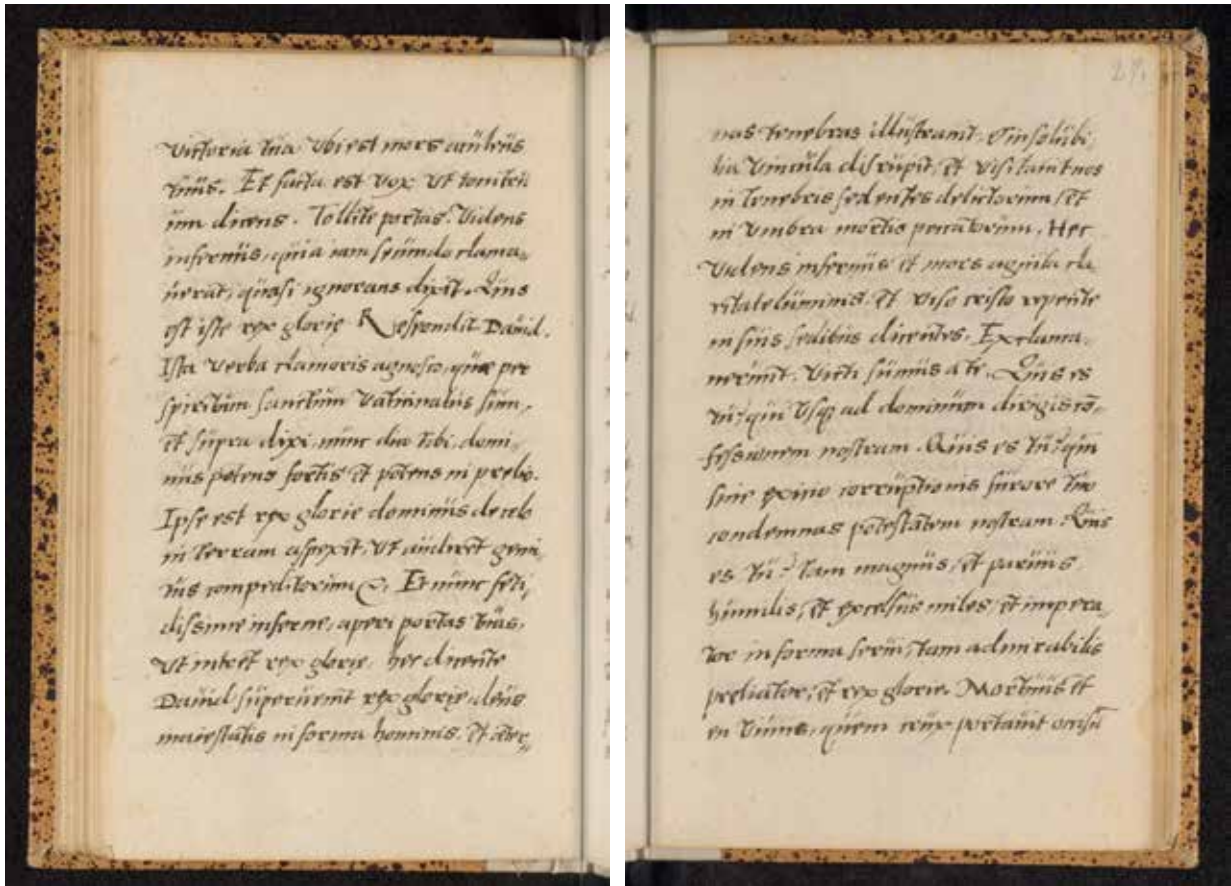 victoria tua. Vbi est mors aculeus
tuus. Et facta est vox vt tonitru
um dicens. Tollite portas. Videns
infernus, quia iam secundo clama-
uerat, quasi ignorans dixit. Quis
est iste rex glorię Respondit Dauid.
Ista verba clamoris agnosco, quæ per
spiritum sanctum vaticinatus sum,
et supra dixi, nunc dico tibi, domi-
nus potens fortis et potens in prelio.
Ipse est rex glorię dominus de celo
in terram aspexit, vt audiret gemi-
tus compeditorum &. Et nunc feti-
dissime inferne, aperi portas tuas,
vt intret rex glorię. hec dicente
Dauid superuenit rex glorię, deus
maiestatis in forma hominis. Et æter-
271
nas tenebras illustrauit. et insolubi-
lia vincula disrupit, et visitauit nos
in tenebris sedentes delictorum, et
in vmbra mortis peccatorum. Hec
videns infernus et mors agnita cla-
ritate luminis, et viso cristo repente
in suis sedibus dicentes. Exclama-
uerunt. Victi sumus a te. Quis es
tu? qui vsq; ad dominum dirigis cō-
fessionem nostram. Quis es tu? qui
sine exitio corruptionis furore tuo
condemnas potestatem nostram. Quis
es tu? tam magnus, et paruus
humilis, et excelsus miles, et impera-
tor in forma serui, tam admirabilis
preliator, et rex glorie. Mortuus et
en viuus, quem crux portauit occisū